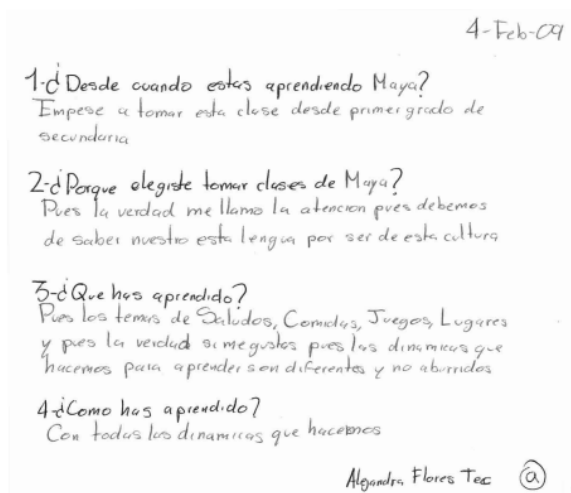 4-Feb-09
1-¿Desde cuando estas aprendiendo Maya?
Empese a tomar esta clase desde primer grado de
secundaria
2-¿Porque elegiste tomar clases de Maya?
Pues la verdad me llamo la atencion pues debemos
de saber nuestro esta lengua por ser de esta cultura
3-¿Que has aprendido?
Pues los temas de Saludos, Comidas, Juegos, Lugares
y pues la verdad si me gustas pues las dinamicas que
hacemos para aprender son diferentes y no aburridos
4-¿Como has aprendido?
Con todas las dinamicas que hacemos
Alejandra Flores Tec a